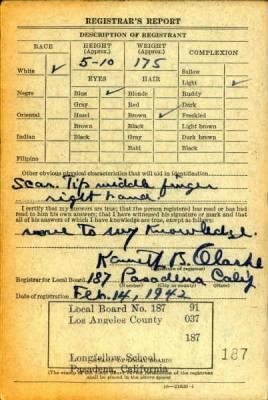 REGISTRAR'S REPORT
DESCRIPTION OF REGISTRANT
RACE HEIGHT (Approx.) WEIGHT (Approx.) COMPLEXION
5-10 175
White ✓ Sallow
EYES HAIR Light ✓
Negro Blue ✓ Blonde Ruddy
Gray Red Dark
Oriental Hazel Brown ✓ Freckled
Brown Black Light brown
Indian Black Gray Dark brown
Bald Black
Filipino
Other obvious physical characteristics that will aid in identification
Scar. Tip middle finger
right hand
I certify that my answers are true; that the person registered has read or has had
read to him his own answers; that I have witnessed his signature or mark and that
all of his answers of which I have knowledge are true, except as follows:
none to my Knowledge.
Kenneth B. Clarke
(Signature of registrar)
Registrar for Local Board 187 Pasadena Calif
(Number) (City or county) (State)
Date of registration Feb. 14, 1942
Local Board No. 187 91
Los Angeles County 037
187
Longfellow School
Pasadena, California.
187